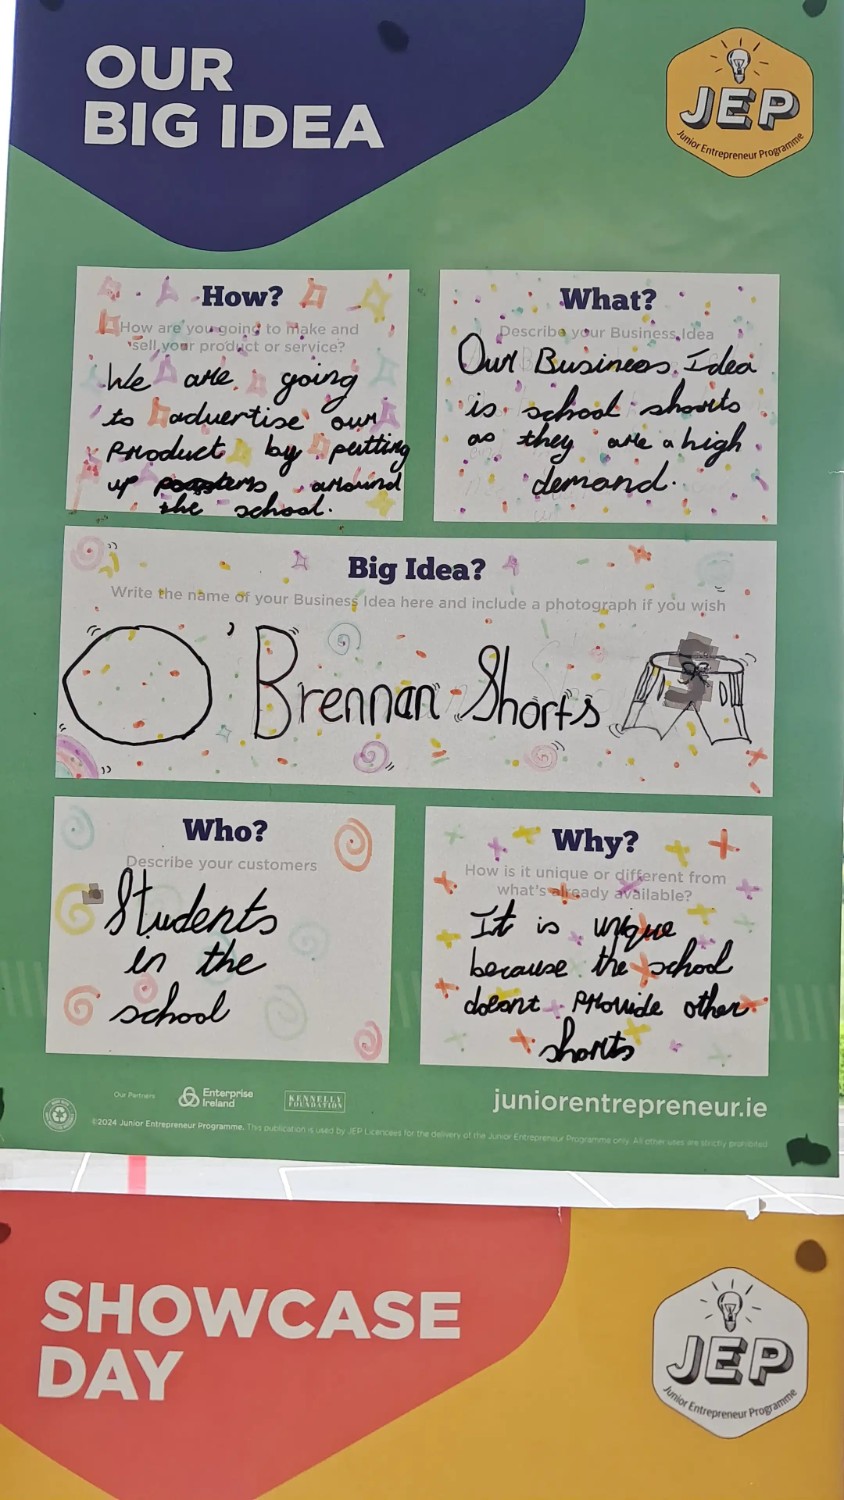 OUR
BIG IDEA
JEP
Junior Entrepreneur Programme
How?
How are you going to make and
sell your product or service?
We are going
to advertise our
Product by putting
up poasters around
the school.
What?
Describe your Business Idea
Our Business Idea
is school shorts
as they are a high
demand.
Big Idea?
Write the name of your Business Idea here and include a photograph if you wish
O'Brennan Shorts
Who?
Describe your customers
Students
in the
school
Why?
How is it unique or different from
what's already available?
It is unique
because the school
doesnt provide other
shorts
Our Partners
Enterprise
Ireland
KENNELLY
FOUNDATION
juniorentrepreneur.ie
©2024 Junior Entrepreneur Programme. This publication is used by JEP Licencees for the delivery of the Junior Entrepreneur Programme only. All other uses are strictly prohibited
SHOWCASE
DAY
JEP
Junior Entrepreneur Programme